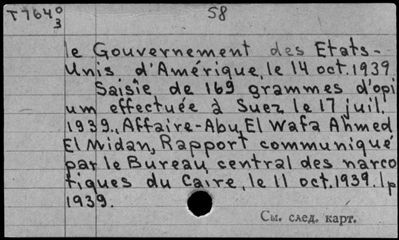 T7640
3
58
le Gouvernement des Etats-
Unis d'Amérique, le 14 oct. 1939
Saisie de 169 grammes d'opi
um effectuée à Suez le 17 juil.
1939., Affaire-Abu El Wafa Ahmed
El Midan, Rapport communiqué
par le Bureau central des narco
tiques du Caire, le 11 oct. 1939. 1p
1939.
См. след. карт.